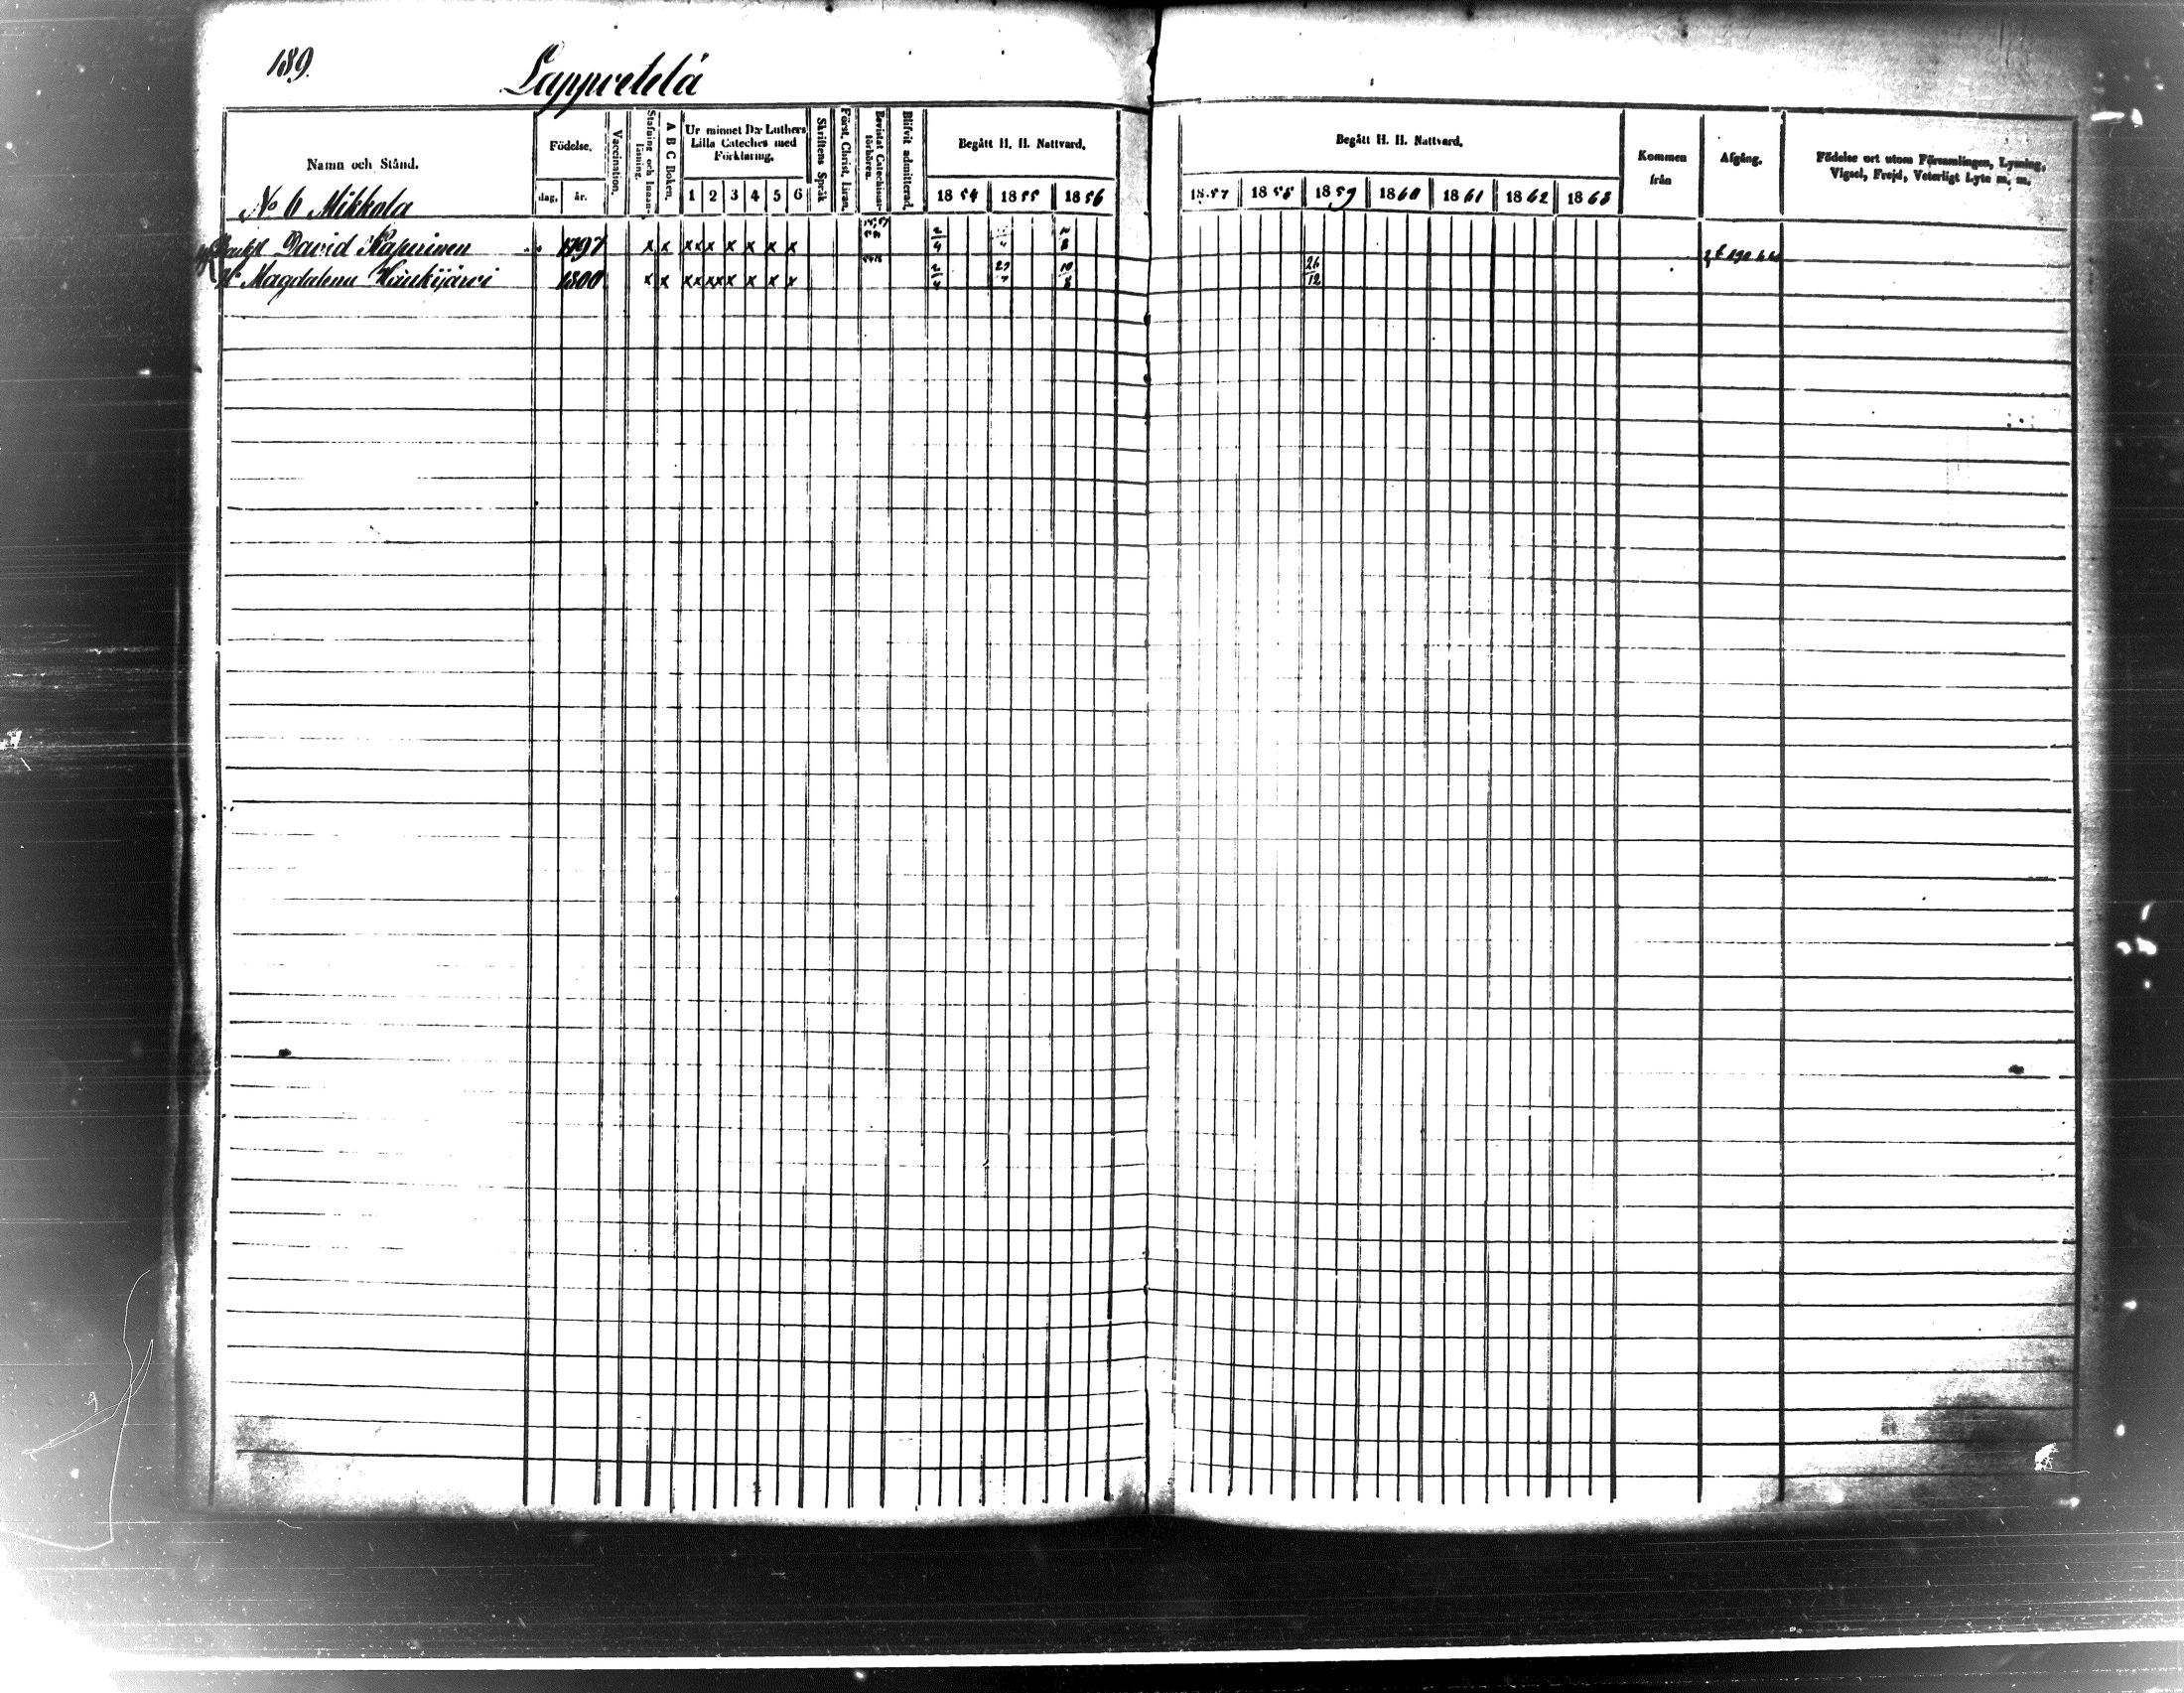 189.
Lappvetelä
Namn och Stånd.
Födelse.
dag. år.
Vaccination.
Stafning och Innanläsning.
A B C Boken.
Ur minnet D:r Luthers Lilla Cateches med Förklaring.
1 2 3 4 5 6
Skriftens Språk
Först. Christ. Läran.
Bevistat Catechismiförhören.
Blifvit admitterad.
Begått H. H. Nattvard,
1854 1855 1856
Begått H. H. Nattvard,
1857 1858 1859 1860 1861 1862 1863
Kommen från
Afgång.
Födelse ort utom Församlingen, Lysning, Vigsel, Frejd, Veterligt Lyte m. m.
No 6 Mikkola
David 1797 x x x x x x x x x 2/4
H. Magdalena 1800 x x x x x x x x x 2/4 10/8 26/12